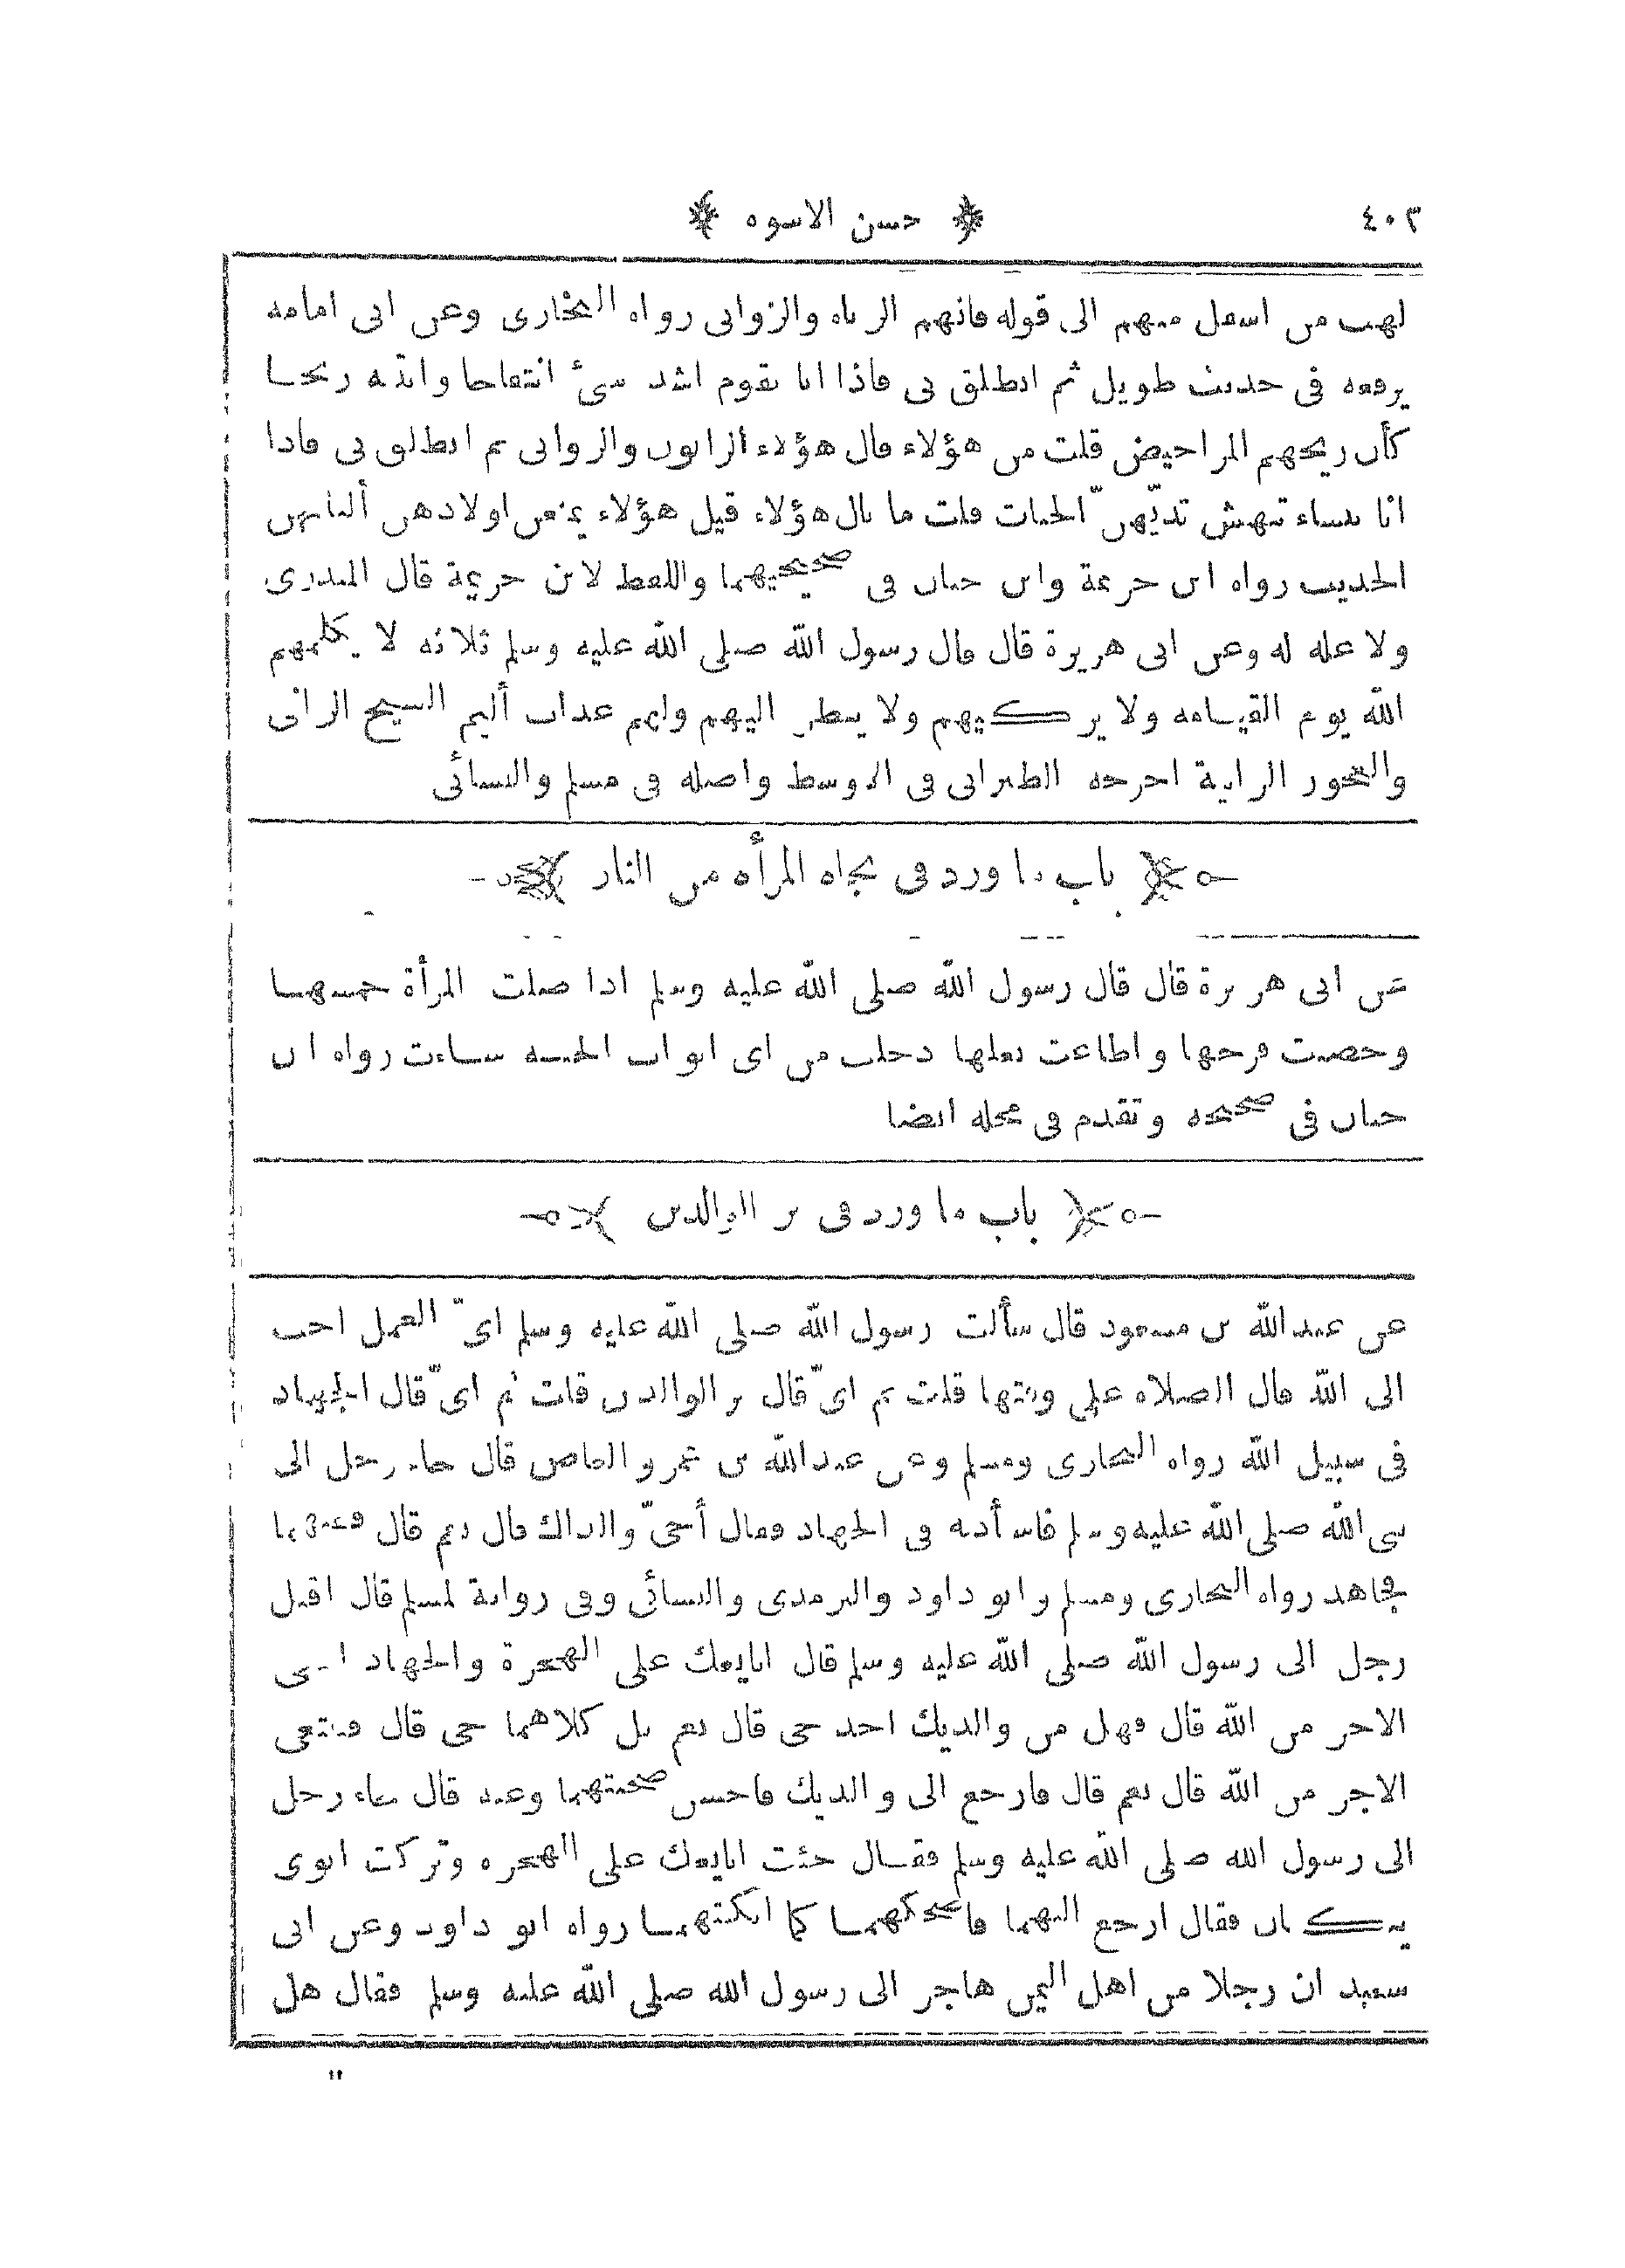 ٤٠٢ حسن الاسوه
لهب من اسفل منهم الى قوله فانهم الزناه والزوانى رواه البخارى وعن ابى امامه
يرفعه فى حديث طويل ثم انطلق بى فاذا انا بقوم اشد شئ انتفاخا وانتنه ريحا
كأن ريحهم المراحيض قلت من هؤلاء قال هؤلاء الزانون والزوانى ثم انطلق بى فاذا
انا بنساء تنهش ثديّهنّ الحيات قلت ما بال هؤلاء قيل هؤلاء يمنعن اولادهن ألبانهن
الحديث رواه ابن خزيمة وابن حبان فى صحيحيهما واللفظ لابن خزيمة قال المنذرى
ولا علة له وعن ابى هريرة قال قال رسول الله صلى الله عليه وسلم ثلاثه لا يكلمهم
الله يوم القيامه ولا يزكيهم ولا ينظر اليهم ولهم عذاب أليم الشيخ الزانى
والعجوز الزانية اخرجه الطبرانى فى الاوسط واصله فى مسلم والنسائى
باب ما ورد فى نجاه المرأه من النار
عن ابى هريرة قال قال رسول الله صلى الله عليه وسلم اذا صلت المرأة خمسها
وحصنت فرجها واطاعت بعلها دخلت من اى ابواب الجنسه شاءت رواه ابن
حبان فى صحيحه وتقدم فى محله ايضا
باب ما ورد فى بر الوالدين
عن عبد الله بن مسعود قال سألت رسول الله صلى الله عليه وسلم اىّ العمل احب
الى الله قال الصلاه على وقتها قلت ثم اىّ قال بر الوالدين قلت ثم اىّ قال الجهاد
فى سبيل الله رواه البخارى ومسلم وعن عبد الله بن عمرو العاص قال جاء رجل الى
نبى الله صلى الله عليه وسلم فاستأذنه فى الجهاد فقال أحىّ والداك قال نعم قال ففيهما
فجاهد رواه البخارى ومسلم وابو داود والترمذى والنسائى وفى رواية لمسلم قال اقبل
رجل الى رسول الله صلى الله عليه وسلم قال ابايعك على الهجرة والجهاد ابتغى
الاجر من الله قال فهل من والديك احد حى قال نعم بل كلاهما حى قال فتبتغى
الاجر من الله قال نعم قال فارجع الى والديك فاحسن صحبتهما وعنه قال جاء رجل
الى رسول الله صلى الله عليه وسلم فقال جئت ابايعك على الهجره وتركت ابوى
يبكيان فقال ارجع اليهما فاضحكهما كما ابكيتهما رواه ابو داود وعن ابى
سعيد ان رجلا من اهل اليمن هاجر الى رسول الله صلى الله عليه وسلم فقال هل